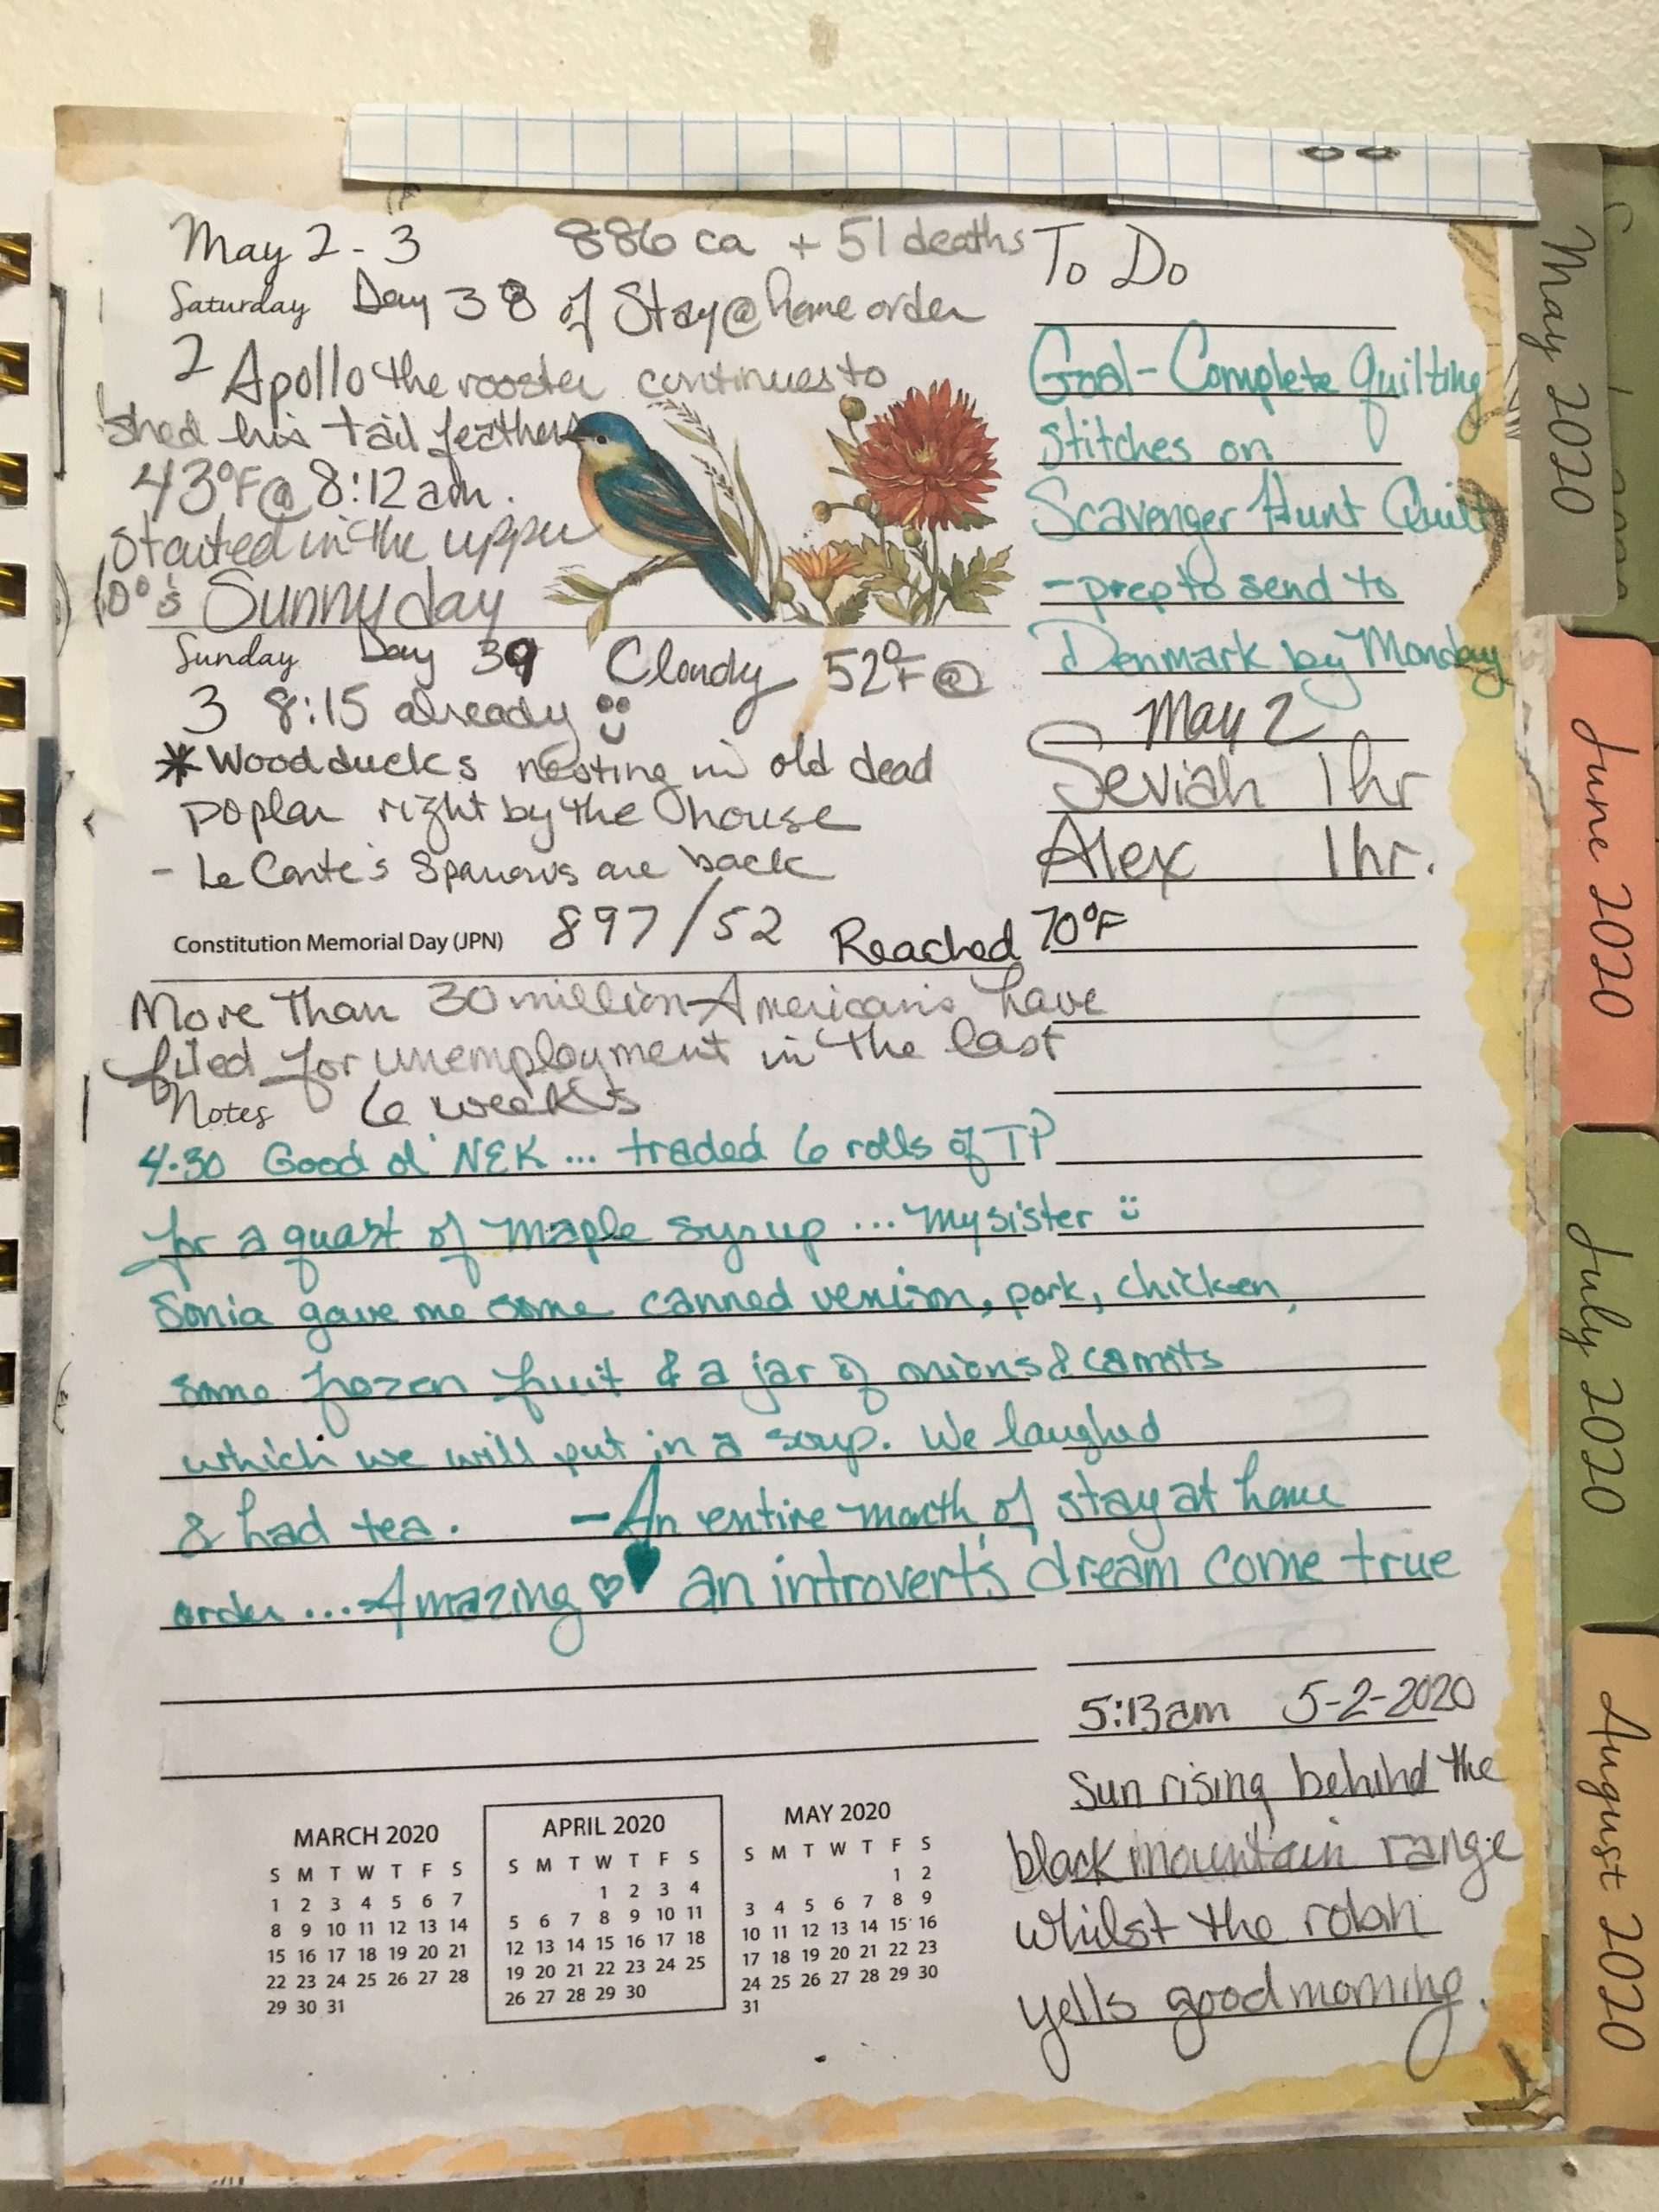 May 2 - 3 886 ca + 51 deaths
Saturday Day 38 of Stay@home order
2 Apollo the rooster continues to
shed his tail feathers
43°F @ 8:12 am.
started in the upper
Sunny day
Sunday Day 39 Cloudy 52°F @
3 8:15 already
* Wood ducks nesting in old dead
poplar right by the house
- Le Conte's Sparrows are back
Constitution Memorial Day (JPN) 897/52 Reached 70°F
More Than 30 million Americans have
filed for unemployment in the last
Notes 6 weeks
4-30 Good ol' NEK ... traded 6 rolls of TP
for a quart of maple syrup ... My sister
Sonia gave me some canned venison, pork, chicken,
some frozen fruit & a jar of onions & carrots
which we will put in a soup. We laughed
& had tea. - An entire month of stay at home
order ... Amazing an introvert's dream come true
To Do
Goal - Complete Quilting
stitches on
Scavenger Hunt Quilt
- prep to send to
Denmark by Monday
May 2
Seviah 1hr
Alex 1hr.
5:13am 5-2-2020
Sun rising behind the
black mountain range
whilst the robin
yells good morning.
MARCH 2020
S M T W T F S
1 2 3 4 5 6 7
8 9 10 11 12 13 14
15 16 17 18 19 20 21
22 23 24 25 26 27 28
29 30 31
APRIL 2020
S M T W T F S
1 2 3 4
5 6 7 8 9 10 11
12 13 14 15 16 17 18
19 20 21 22 23 24 25
26 27 28 29 30
MAY 2020
S M T W T F S
1 2
3 4 5 6 7 8 9
10 11 12 13 14 15 16
17 18 19 20 21 22 23
24 25 26 27 28 29 30
31
May 2020
June 2020
July 2020
August 2020